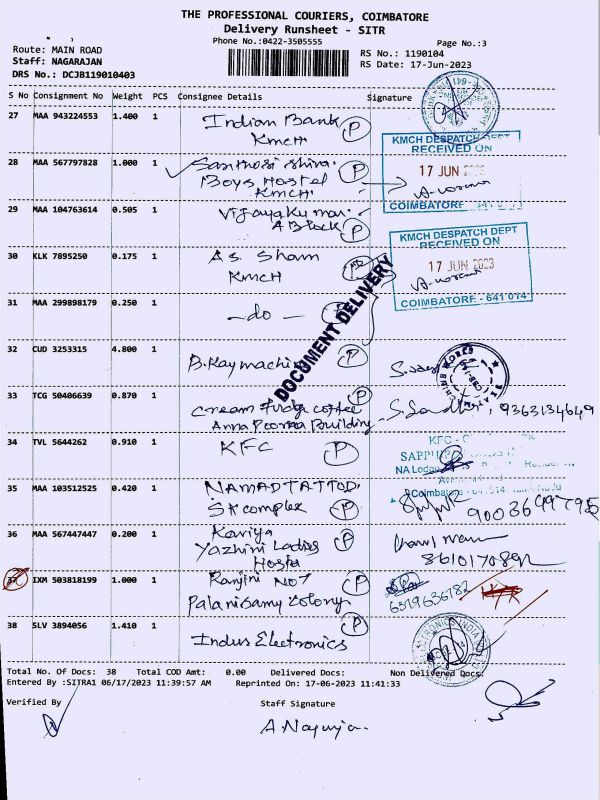 THE PROFESSIONAL COURIERS, COIMBATORE
Delivery Runsheet - SITR
Phone No.:0422-3505555
Page No.:3
Route: MAIN ROAD
RS No.: 1190104
Staff: NAGARAJAN
RS Date: 17-Jun-2023
DRS No.: DCJB119010403
S No Consignment No Weight PCS Consignee Details Signature
27 MAA 943224553 1.400 1 Indian Bank P
KMCH
KMCH DESPATCH DEPT
RECEIVED ON
28 MAA 567797828 1.000 1 Santhosi Shiva P 17 JUN
Boys Hostel
KMCH
COIMBATORE
29 MAA 104763614 0.505 1 Vijayakumar
A Block P
KMCH DESPATCH DEPT
RECEIVED ON
30 KLK 7895250 0.175 1 As Sham 17 JUN 2023
KMCH
COIMBATORE - 641 014
31 MAA 299898179 0.250 1 - do -
DOCUMENT DELIVERY
32 CUD 3253315 4.800 1 B. Kay machine P
33 TCG 50406639 0.870 1 Cream Fudge coffee P 9363134649
Anna Poorna Building
34 TVL 5644262 0.910 1 KFC P KFC -
35 MAA 103512525 0.420 1 NAMAD TATTOO
SK complex P 9003649795
36 MAA 567447447 0.200 1 Kaviya P
Yazhini Ladies
Hostel
37 IXM 503818199 1.000 1 Ranjini No 7 P 6379636182
Palanisamy Colony
38 SLV 3894056 1.410 1 P
Indus Electronics
Total No. Of Docs: 38 Total COD Amt: 0.00 Delivered Docs: Non Delivered Docs:
Entered By :SITRA1 06/17/2023 11:39:57 AM Reprinted On: 17-06-2023 11:41:33
Verified By Staff Signature